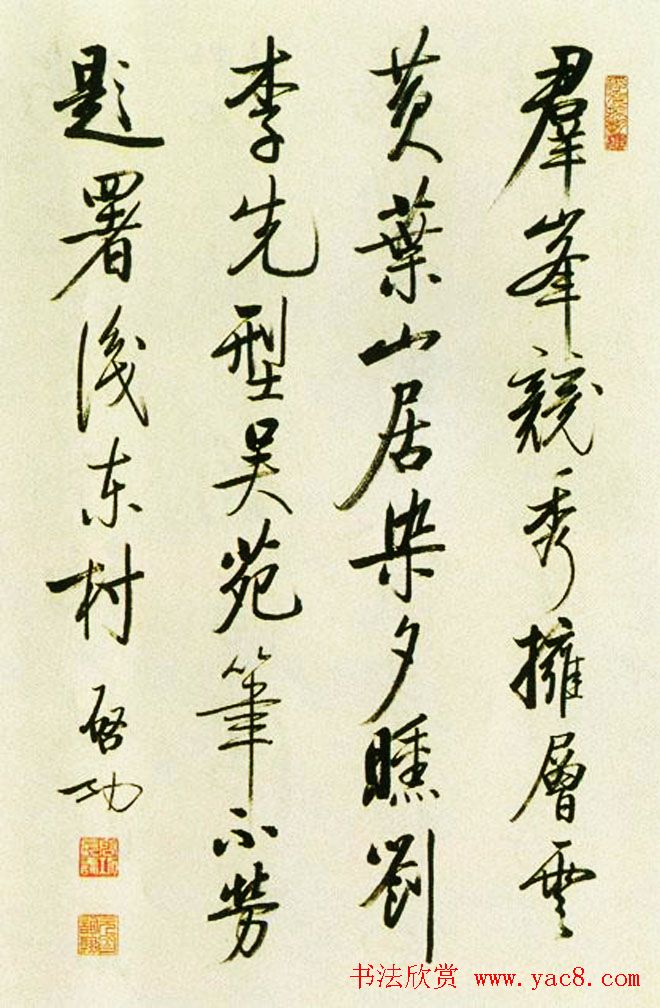 羣峯競秀擁層雲
黄葉山居染夕曛劉
李先型吴苑筆不勞
題署後东村
啓功
书法欣赏 www.yac8.com